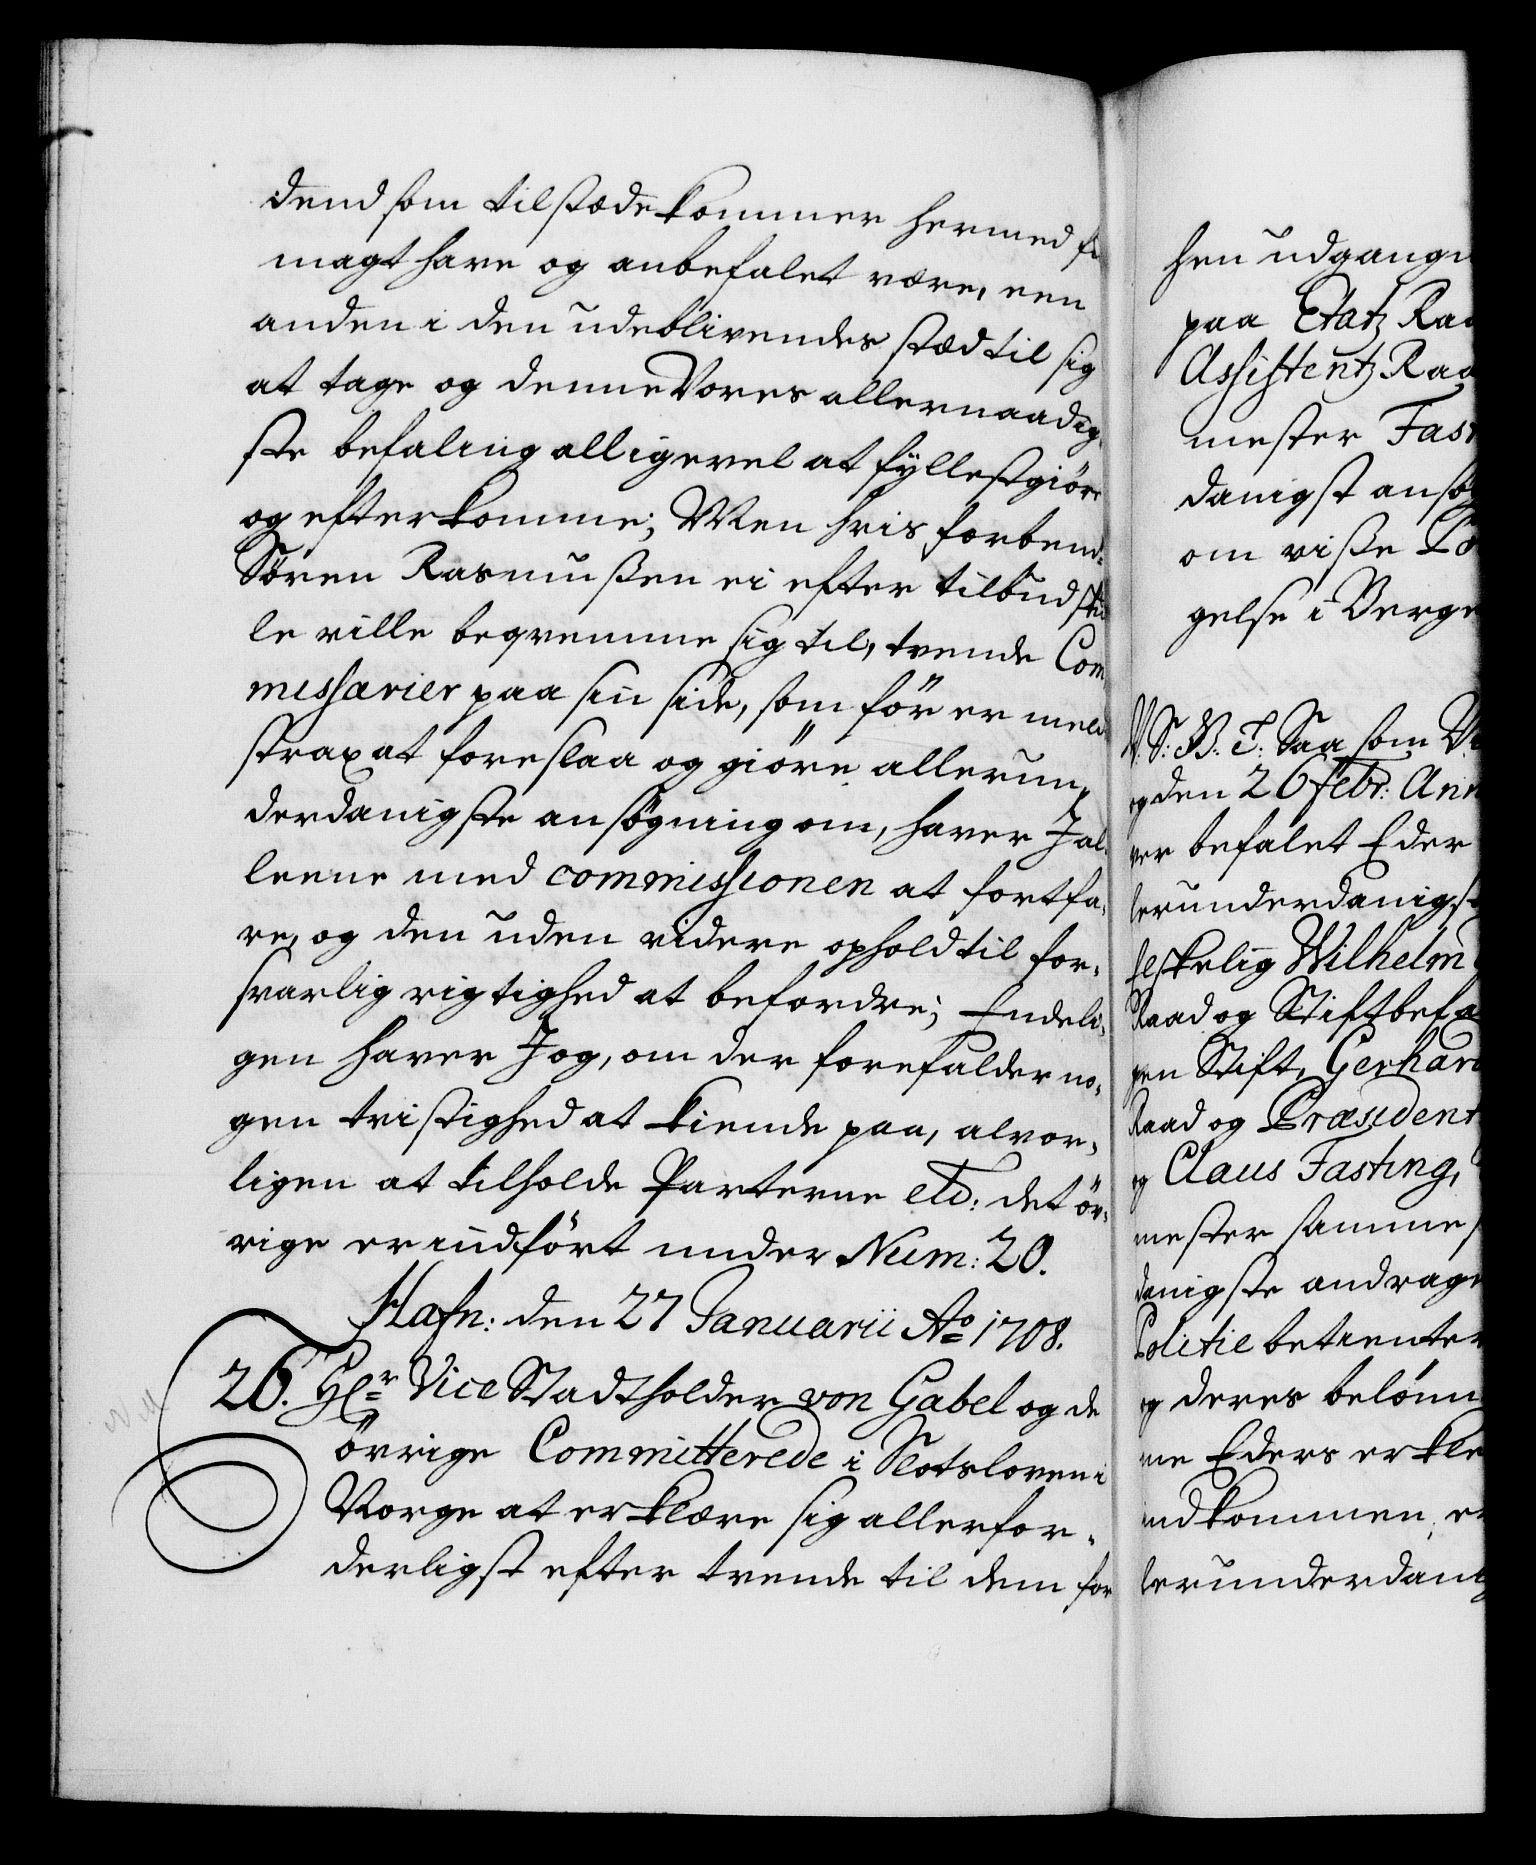 dend som tilstæde kommer hermed
magt have og anbefalet være, een
anden i den udeblivendes stæd til sig
at tage og denne Vores allernaadig-
ste befaling alligevel at fyllestgiøre
og efterkomme; Men hvis forbend=
Sören Rasmußen ei efter tilbud
le ville beqvemme sig til, trende Com
missarier paa sin side, som för er meld
strax at foreslaa og giöre allerun-
derdanigste ansøgning om, haver J al-
leene med commissionen at fortfa-
re, og den uden videre ophold til for-
svarlig rigtighed at befordre; Endeli-
gen haver J og, om der forefalder no-
gen tvistighed at kiende paa, alvor-
ligen at tilholde Parterne etc: det öv-
rige er indfört under Num: 20.
Hafn: den 27 Januarii Ao 1708.
26. Hr Vice Stadtholder von Gabel og de
övrige Committerede i Slotsloven i
Norge at erklære sig allerfor-
derligst efter trende til dem for
hen udgangn
paa Etatz Raa
Assistentz Raa
mester Fast
danigst ansøg
om viße Po
gelse i Berge
V. S: G. T: Saa som Vi
og den 26 Febr: Ann
ver befalet Eder
lerunderdanigst
felskelig Wilhelm
Raad og Stiftbefa
gen Stift, Gerhard
Raad og Præsident
og Claus Fasting,
mester samme
danigste andrage
Politie betienter
og deres belönn
me Eders erkle
indkommen, er
lerunderdanig